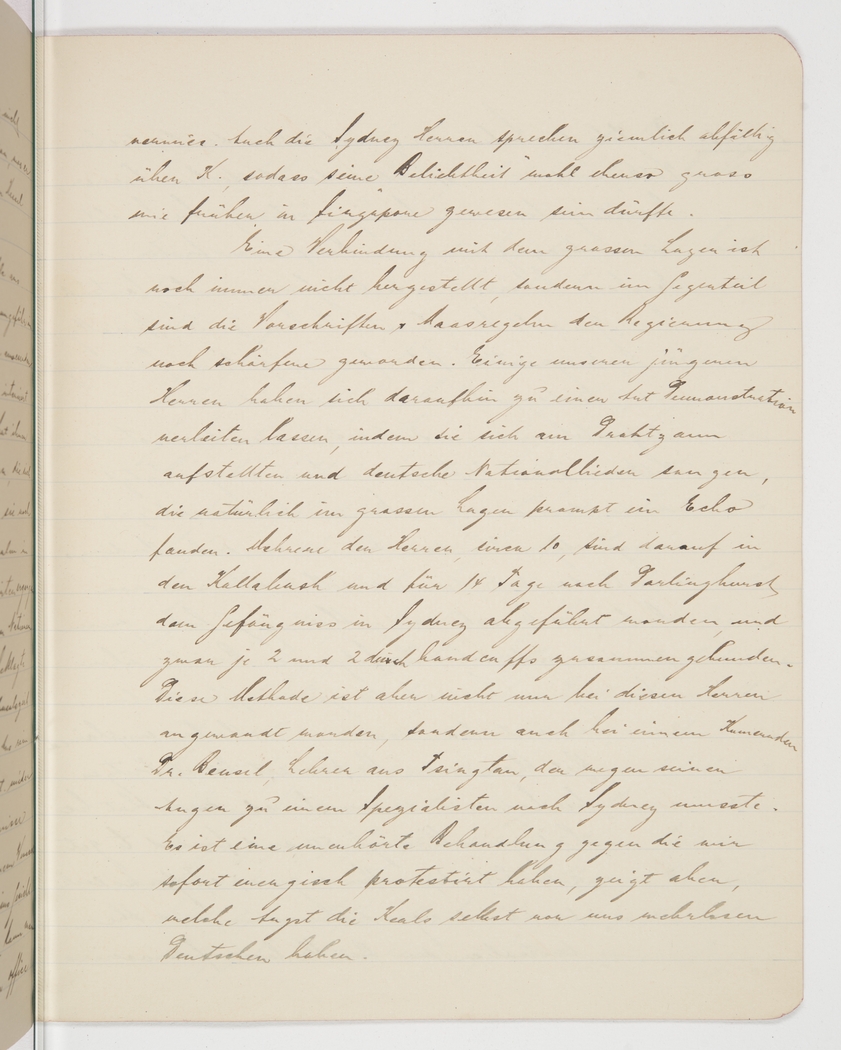 Auch die Sydney Herren sprechen ziemlich abfällig
über K., sodass seine "Beliebtheit" wohl ebenso gross
wie früher in Singapore gewesen sein dürfte.
Eine Verbindung mit dem grossen Lager ist
noch immer nicht hergestellt, sondern im Gegenteil
sind die Vorschriften & Maasregeln der Regierung
noch schärfere geworden. Einige unserer jüngeren
Herren haben sich daraufhin zu einer Art Demonstration
verleiten lassen, indem sie sich am Drahtzaun
aufstellten und deutsche Nationallieder sangen,
die natürlich im grossen Lager prompt ein Echo
fanden. Mehrere der Herren, circa 10, sind darauf in
den Kallabush und für 14 Tage nach Darlinghurst,
dem Gefängniss in Sydney abgeführt worden, und
zwar je 2 und 2 durch handcuffs zusammengebunden.
Diese Methode ist aber nicht nur bei diesen Herren
angewandt worden, sondern auch bei einem Kameraden
Dr. Bensel, Lehrer aus Tsingtau, der wegen seiner
Augen zu einem Spezialisten nach Sydney musste.
Es ist eine unerhörte Behandlung gegen die wir
sofort energisch protestirt haben, zeigt aber,
welche Angst die Kerls selbst vor uns wehrlosen
Deutschen haben.